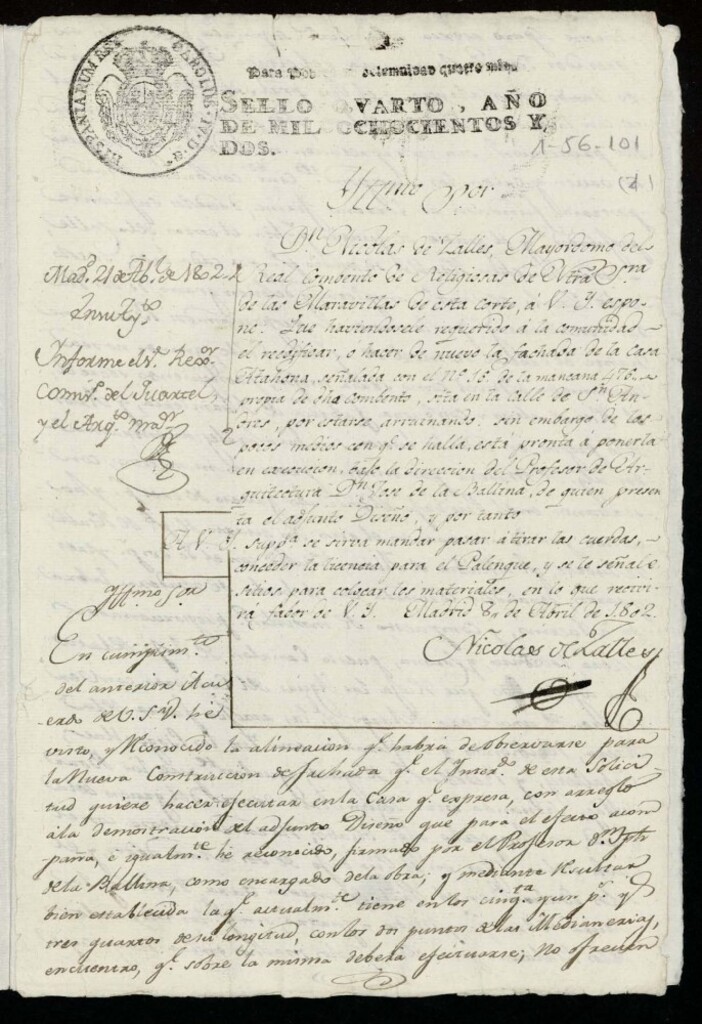 HISPANIARUM REX CAROLUS IV D.G.
Para solemnidad quatro mrs
SELLO QVARTO, AÑO
DE MIL OCHOCIENTOS Y
DOS.
1-56-101
Yllmo Sor
Dn. Nicolas de Lalles, Mayordomo del
Real Combento de Religiosas de Ntra Sra
de las Maravillas de esta corte, á V. Y. espo-
ne: Que haviendosele requerido á la comunidad
el reedificar, o hacer de nuevo la fachada de la casa
Atahona, señalada con el No. 15 de la manzana 476
propia de dho combento, sita en la calle de Sn. An-
dres, por estarse arruinando: sin embargo de los
pocos medios con q.e se halla, está pronta á ponerla
en execucion, bajo la direccion del Profesor de Ar-
quitectura Dn. Jose de la Ballina, de quien presen-
ta el adjunto Diseño, y por tanto
A V. Y. supca. se sirva mandar pasar á tirar las cuerdas,
conceder la licencia para el Palenque, y se le señale
sitios para colocar los materiales, en lo que recivi-
rá favor de V. Y. Madrid 8 de Abril de 1802.
Nicolas de Lalles
Mad. 21 de Abl. de 1802
Informe el Sr. Rexor.
Comis. del Quartel,
y el Arqto. mayr.
Yllmo Sor
En cumplimto.
del anterior Acu-
erdo de V. S. Y. he
visto, y reconocido la alineacion q.e habrá de observarse para
la Nueva Construccion de fachada q.e el Interdo. de esta Solici-
tud quiere hacer ejecutar en la Casa q.e expresa, con arreglo
á la demostracion del adjunto Diseño que para el efecto acom
paña, é igualmte. he reconocido, firmado por el Profesor Dn. Jph
de la Ballina, como encargado de la obra; y mediante resultar
bien establecida la q.e actualmte. tiene en los cinqta y un ps. y
tres quartos de su longitud, con los dos puntos de las Medianerias,
encuentro, q.e sobre la misma deberá efectuarse; no ofrecen